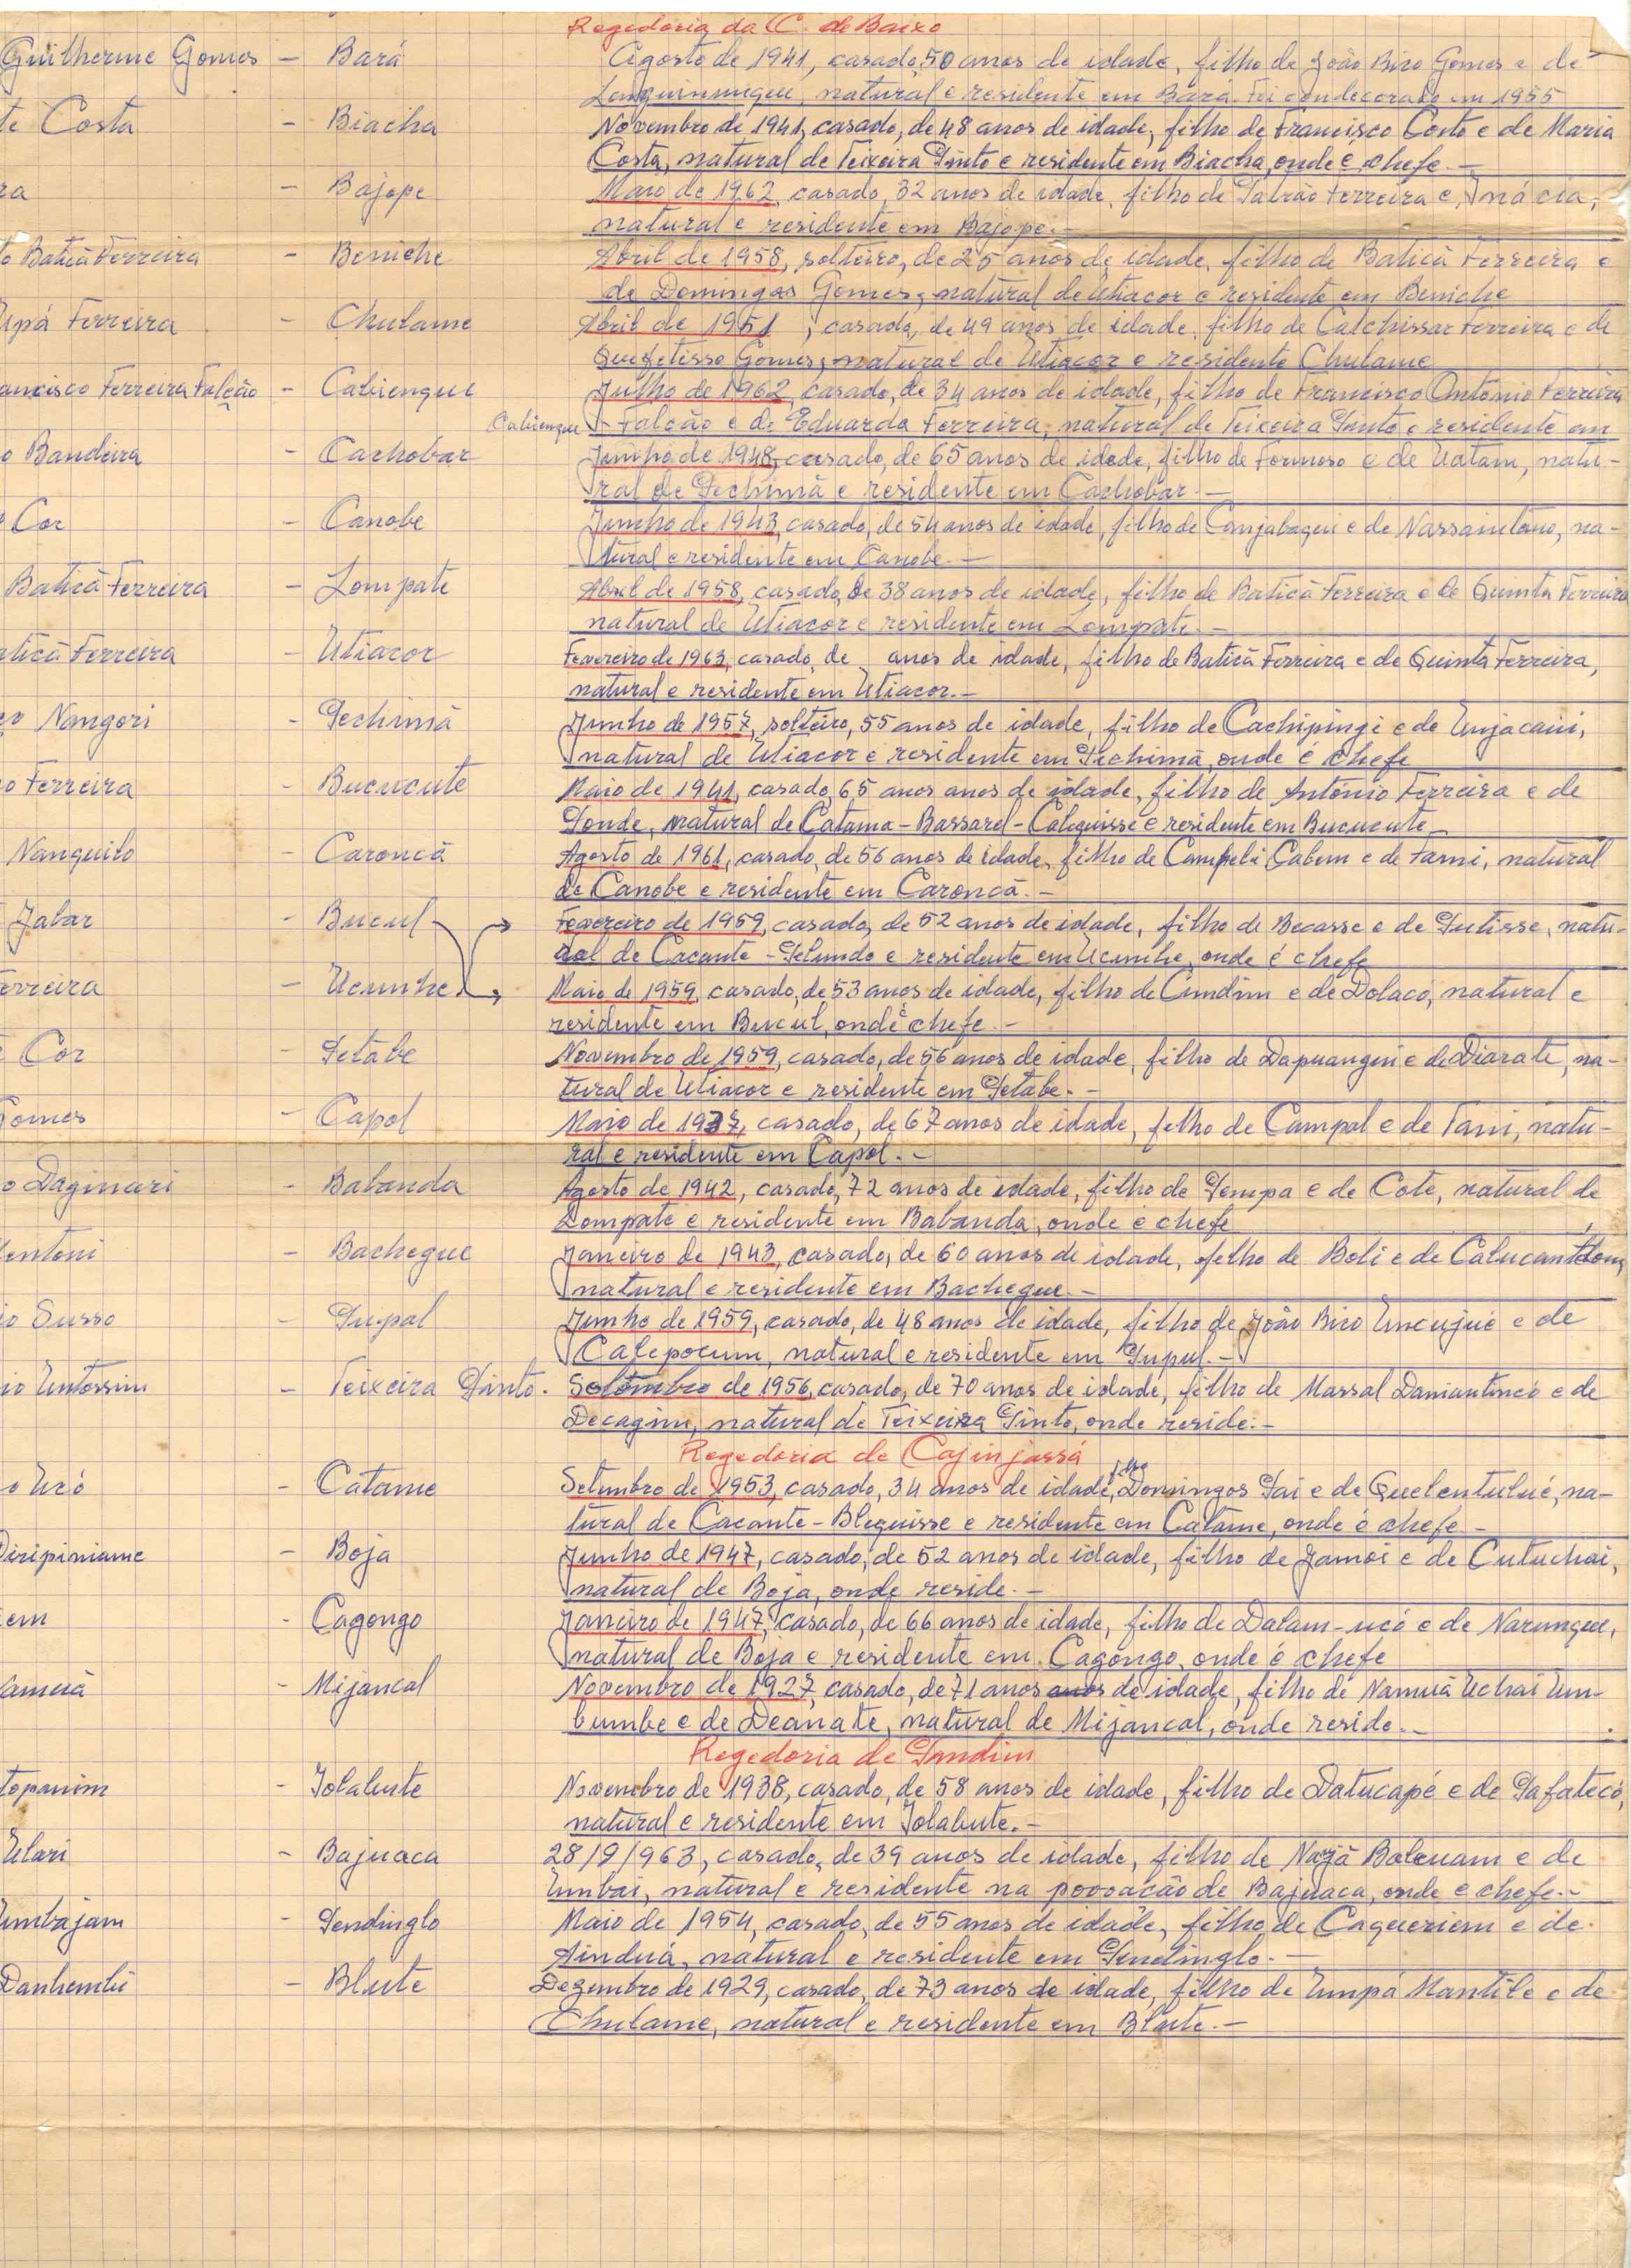 Regedoria da C. de Baixo
Guilherme Gomes - Bará Agosto de 1941, casado, 50 anos de idade, filho de João Biro Gomes e de
natural e residente em Bará. Foi condecorado em 1955
te Costa - Biacha Novembro de 1941, casado, de 48 anos de idade, filho de Francisco Costa e de Maria
Costa, natural de Teixeira Pinto e residente em Biacha, onde é chefe.-
ra - Bajope Maio de 1962, casado, 32 anos de idade, filho de Ferreira e Inácia,
natural e residente em Bajope.-
o Baticã Ferreira - Beniche Abril de 1958, solteiro, de 25 anos de idade, filho de Baticã Ferreira e
de Domingas Gomes, natural de Utiacor e residente em Beniche
upá Ferreira - Chulame Abril de 1951, casado, de 49 anos de idade, filho de Calchissar Ferreira e de
Quefetisso Gomes, natural de Utiacor e residente Chulame
ancisco Ferreira Falcão - Cabiengue Julho de 1962, casado, de 34 anos de idade, filho de Francisco António Ferreira
Cabiengue Falcão e de Eduarda Ferreira, natural de Teixeira Pinto e residente em
o Bandeira - Cachobar Junho de 1948, casado, de 65 anos de idade, filho de Formoso e de Uatam, natu-
ral de Pechimã e residente em Cachobar.-
Cor - Canobe Junho de 1943, casado, de 54 anos de idade, filho de Canjabagui e de Nassaintano, na-
tural e residente em Canobe.-
Baticã Ferreira - Lompate Abril de 1958, casado, de 38 anos de idade, filho de Baticã Ferreira e de Quinta Ferreira
natural de Utiacor e residente em Lompate.-
aticã Ferreira - Utiacor Fevereiro de 1963, casado, de anos de idade, filho de Baticã Ferreira e de Quinta Ferreira,
natural e residente em Utiacor.-
Nangori - Pechimã Junho de 1957, solteiro, 55 anos de idade, filho de Cachipingi e de Unjacaini,
natural de Utiacor e residente em Pechimã, onde é chefe
o Ferreira - Bucucute Maio de 1941, casado, 65 anos anos de idade, filho de António Ferreira e de
Ponde, natural de Catama-Bassarel-Calequisse e residente em Bucucute
Nanguilo - Caroncã Agosto de 1961, casado, de 56 anos de idade, filho de Campeli Cabem e de Fami, natural
de Canobe e residente em Caroncã.-
Jabar - Bucul Fevereiro de 1959, casado, de 52 anos de idade, filho de Becasse e de Putisse, natu-
ral de Cacante-Pelundo e residente em Ucunhe, onde é chefe
erreira - Ucunhe Maio de 1959, casado, de 53 anos de idade, filho de Cundim e de Dolacó, natural e
residente em Bucul, onde é chefe.-
Cor - Petabe Novembro de 1959, casado, de 56 anos de idade, filho de Dapuangui e de Diarate, na-
tural de Utiacor e residente em Petabe.-
Gomes - Capol Maio de 1937, casado, de 67 anos de idade, filho de Campal e de Tani, natu-
ral e residente em Capol.-
o Daginari - Babanda Agosto de 1942, casado, 72 anos de idade, filho de Pempa e de Cote, natural de
Lompate e residente em Babanda, onde é chefe
entoni - Bachegue Janeiro de 1943, casado, de 60 anos de idade, filho de Boli e de
natural e residente em Bachegue.-
io Susso - Pupal Junho de 1959, casado, de 48 anos de idade, filho de João Biro Uncujué e de
Catepocum, natural e residente em Pupul.-
io Untossim - Teixeira Pinto. Setembro de 1956, casado, de 70 anos de idade, filho de Massal Damantincó e de
Decagim, natural de Teixeira Pinto, onde reside.-
Regedoria de Cajinjassá
o Ucó - Catame Setembro de 1953, casado, 34 anos de idade, filho Domingos Pai e de Quelentulué, na-
tural de Cacante-Blequisse e residente em Catame, onde é chefe-
Diripiniame - Boja Junho de 1947, casado, de 52 anos de idade, filho de Jamoi e de Cutuchai,
natural de Boja, onde reside.-
em - Cagongo Janeiro de 1947, casado, de 66 anos de idade, filho de Dalam-ucó e de Narungue,
natural de Boja e residente em Cagongo, onde é chefe
amuã - Mijancal Novembro de 1927, casado, de 71 anos anos de idade, filho de Namuã Uchai Um-
bumbe e de Deanate, natural de Mijancal, onde reside.-
Regedoria de Pandim
topanim - Jolabute Novembro de 1938, casado, de 58 anos de idade, filho de Datucapé e de Pafatecó,
natural e residente em Jolabute.-
Ulari - Bajuaca 28/9/963, casado, de 39 anos de idade, filho de Najã Balenam e de
Umbai, natural e residente na povoação de Bajuaca, onde é chefe.-
Umbajam - Pendinglo Maio de 1954, casado, de 55 anos de idade, filho de Caqueriem e de
Ainduá, natural e residente em Pendinglo.-
Danhembi - Blute Dezembro de 1929, casado, de 73 anos de idade, filho de Umpá Mantile e de
Chulame, natural e residente em Blute.-